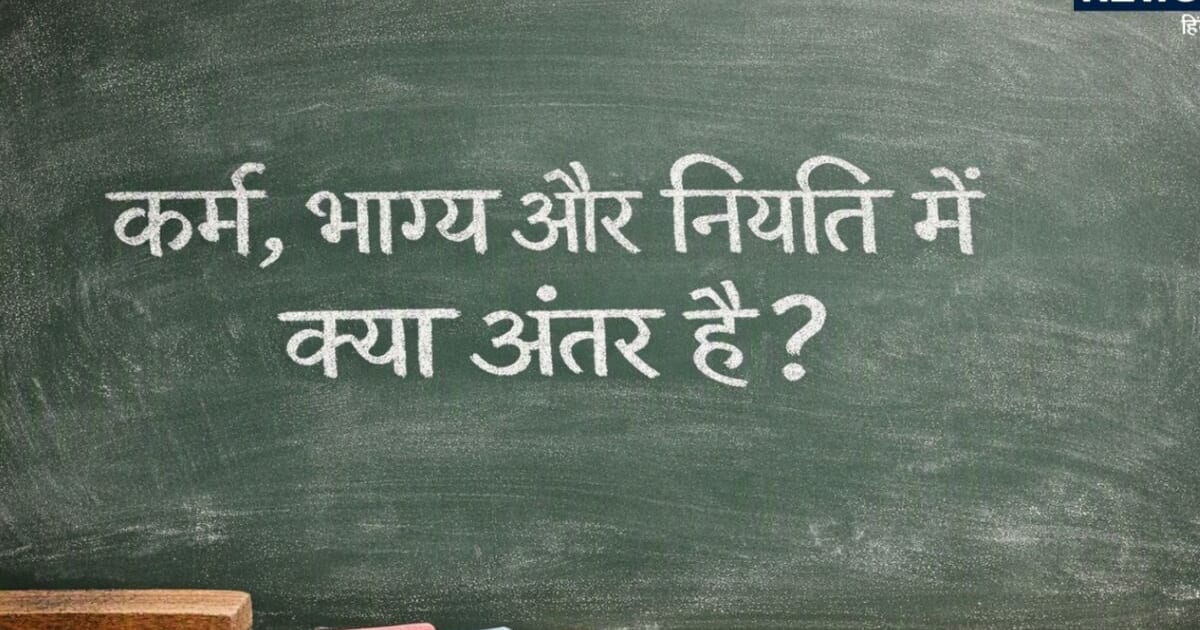 कर्म, भाग्य और नियति में
क्या अंतर है?